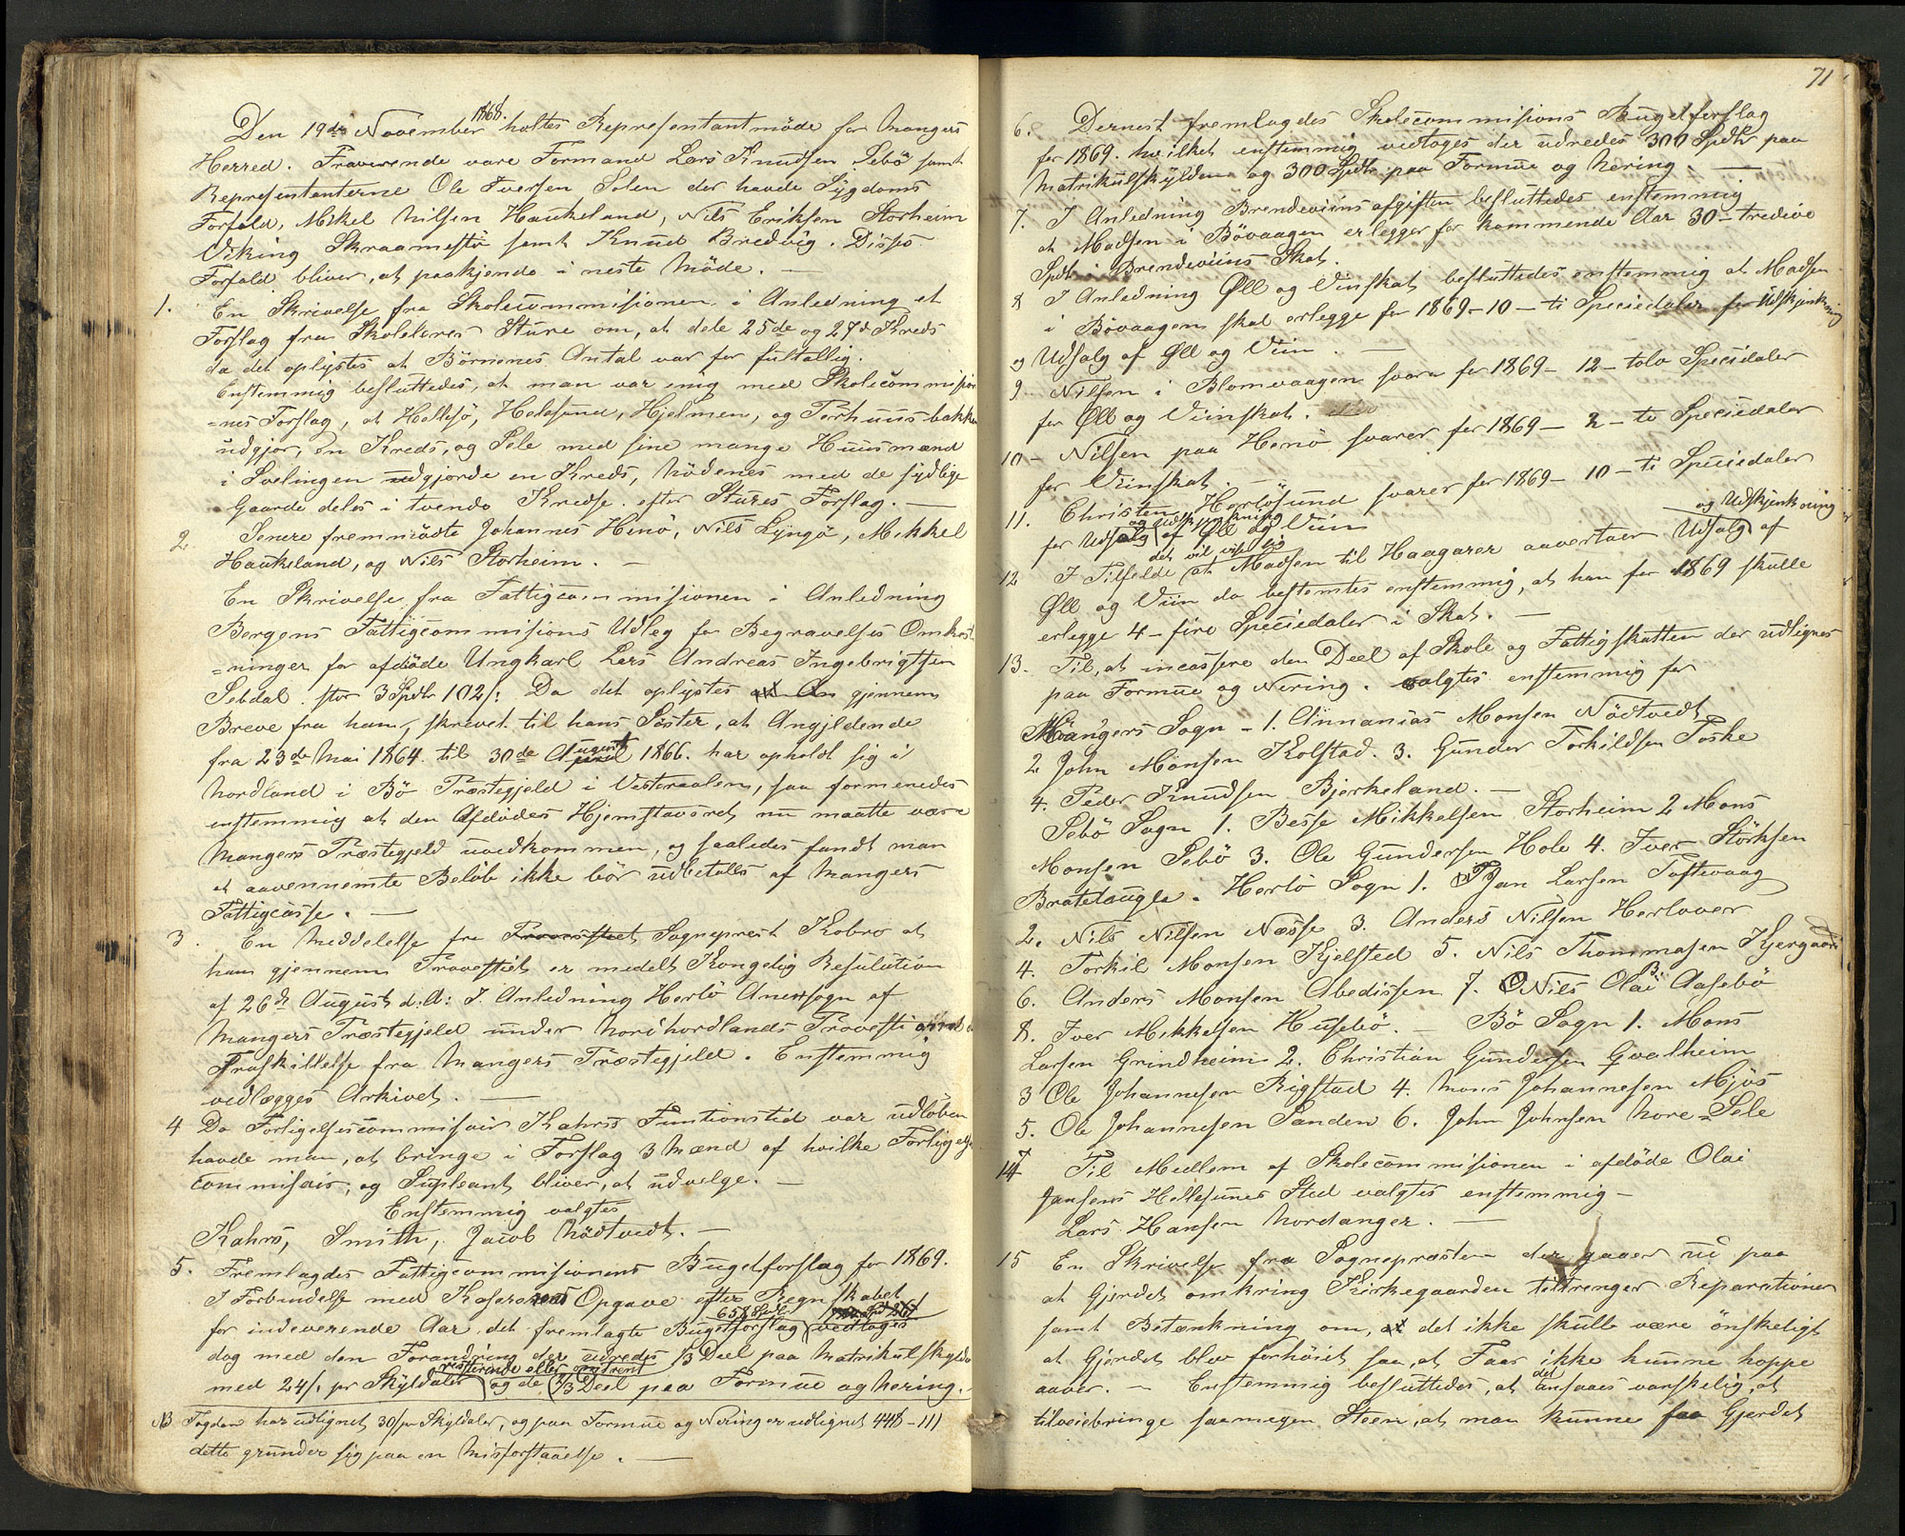 Den 19de November 1868. holtes Repræsentantmöde for Mangers
Herred. Fraverende vare Formand Lars Knudsen Sebö samt
Repræsentanterne Ole Iversen Solen der havde Sygdoms
Forfald, Mikel Nilsen Haukeland, Nils Eriksen Storheim
Viking Skraamestö samt Knud Bredvig. Disses
Forfald bliver, at paakjende i neste Möde. —
1. En Skrivelse fra Skolecommisionen i Anledning et
Forslag fra Skolelerer Sture om, at dele 25de og 27d Kreds
da det oplystes at Börnenes Antal var for fultallig.
Enstemmig besluttedes, at man var enig med Skolecommision
=nes Forslag, at Hellesö, Helesund, Hjelmen, og Torhuusbakken
udgjör, en Kreds, og Sele med sine mange Huusmænd
i Svelingen udgjorde en Kreds, Nödenes med de sydlige
Gaarde deles i tvende Kredse efter Stures Forslag. —
2. Senere fremmödte Johannes Henö, Nils Lyngö, Mikkel
Haukeland, og Nils Storheim. —
En Skrivelse fra Fattigcommisionen i Anledning
Bergens Fattigcommisions Udleg for Begravelses Omkost
=ninger for afdöde Ungkarl Lars Andreas Ingebrigtsen
Sebdal stor 3 Spdlr 102 s: Da det oplystes at gjennem
Breve fra ham, skrevet til hans Söster, at Angjeldende
fra 23de Mai 1864. til 30de August 1866. har opholdt sig i
Nordland i Bö Præstegjeld i Vestraalen, saa formenedes
enstemmig at den Afdödes Hjemstavsret nu maatte være
Mangers Præstegjeld uvedkommen, og saaledes fandt man
at aavennemte Belöb ikke bör udbetalls af Mangers
Fattigcasse. —
3. En Meddelelse fra Provsstiet Sogneprest Kobro at
ham gjennem Provestiet er medelt Kongelig Resulution
af 26d August d. A: I Anledning Herlö Anexsogn af
Mangers Præstegjeld under Nordhordlands Provesti
Fraskillelse fra Mangers Præstegjeld. Enstemmig
vedlægges Arkivet. —
4 Da Forligelsescommisair Kahrs Funtionstid var udlöben
havde man, at bringe i Forslag 3 Mænd af hvilke Forligelses
commisair, og Supleant bliver, at udvelge. —
Enstemmig valgtes
Kahrs, Smith, Jacob Nödtvedt. —
5. Fremlagdes Fattigcommisionens Bugetforslag for 1869.
I Forbindelse med Kaserens Opgave efter Regnskabet
for indeverende Aar, det fremlagte Bugetforslag 658 vedtoges
dog med den Forandring der udredes 1/3 Deel paa Matrikulskylde
med 24 s. pr Skyldaler resterende eller omtrent og de 2/3 Deel paa Formue og Nering. —
NB Fogden har udlignet 30 s pr Skyldaler, og paa Formue og Nering er udlignet 448 - 111
dette grunder sig paa en Misforstaaelse. —
71
6. Dernest fremlagdes Skolecommisions Bugetforslag
for 1869. hvilket enstemmig vedtoges der udredes 300 Spdlr paa
Matrikulskylden og 300 Spdlr paa Formue og Nering —
7. I Anledning Brendeviins afgiften besluttedes enstemmig
at Madsen i Bövaagen erlegger for kommende Aar 30 - tredive
Spdlr i Brendeviins Skat.
8 I Anledning Öll og Vinskat besluttedes enstemmig at Madsen
i Bövaagen skal erlegge for 1869 - 10 - ti Speciedaler for Udskjenkning
og Udsalg af Öll og Viin. —
9 Nilsen i Blomvaagen svare for 1869 - 12 - tolv Speciedaler
for Öll og Viinskat.
10 - Nilsen paa Henö svarer for 1869 - 2 - to Speciedaler
for Viinskat. —
11. Christen Herlösund svarer for 1869 - 10 - ti Speciedaler
for Udsalg og Udskjenkning af Öll og Viin
12 I Tilfelde det vil vise sig at Madsen til Haagarer aavertaer Udsalg og Udskjenkning af
Öll og Viin da bestemtes enstemmig, at han for 1869 skulle
erlegge 4 - fire Speciedaler i Skat. —
13. Til, at incassere den Deel af Skole og Fattigskatten der udlignes
paa Formue og Nering. valgtes enstemmig for
Mangers Sogn - 1. Annanias Monsen Nödtvedt
2 John Monsen Kolstad. 3. Gunder Torkildsen Toske
4. Peder Knudsen Bjerkeland. —
Sebö Sogn 1. Besse Mikkelsen Storheim 2 Mons
Monsen Sebö 3. Ole Gundersen Hole 4. Iver Störksen
Bratetaugle. Herlö Sogn 1. Jan Larsen Toftevaag
2. Nils Nilsen Nesse 3. Anders Nilsen Herlover
4. Torkil Monsen Kjelsted 5. Nils Thommasen Kjergaard
6. Anders Monsen Abedissen 7. Nils Olai B. Aasebö
8. Iver Mikkelsen Husebö. — Bö Sogn 1. Mons
Larsen Grindheim 2. Christian Gundersen Qvalheim
3 Ole Johannesen Rigstad 4. Mons Johannesen Mjös
5. Ole Johannesen Sanden 6. John Johnsen Nore-Sele
14 Til Medlem af Skolecommisionen i afdöde Olai
Jansens Hellesunes Sted valgtes enstemmig —
Lars Hansen Nordanger. —
15 En Skrivelse fra Sognepræsten der gaaer ud paa
at Gjerdet omkring Kirkegaarden tiltrenger Reparationer
samt Betænkning om, at det ikke skulle være önskeligt
at Gjerdet blev forhöiet saa, at Faar ikke kunne hoppe
aaver. — Enstemmig besluttedes, at det ansaaes vanskelig, at
tilveiebringe saamegen Steen, at man kunne faa Gjerdet